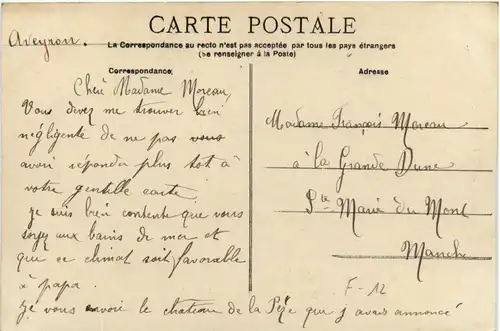 CARTE POSTALE
Aveyron.
La Correspondance au recto n'est pas acceptée par tous les pays étrangers
(se renseigner à la Poste)
Correspondance;
Chère Madame Moreau,
Vous devez me trouver bien
négligente de ne pas vous
avoir répondu plus tot à
votre gentille carte
je suis bien contente que vous
soyez aux bains de mer et
que ce climat soit favorable
à papa.
je vous envoie le chateau de la Pèze que j'avais annoncé
Adresse
Madame François Moreau
à la Grande Dune
Ste Marie du Mont
Manche
F-12